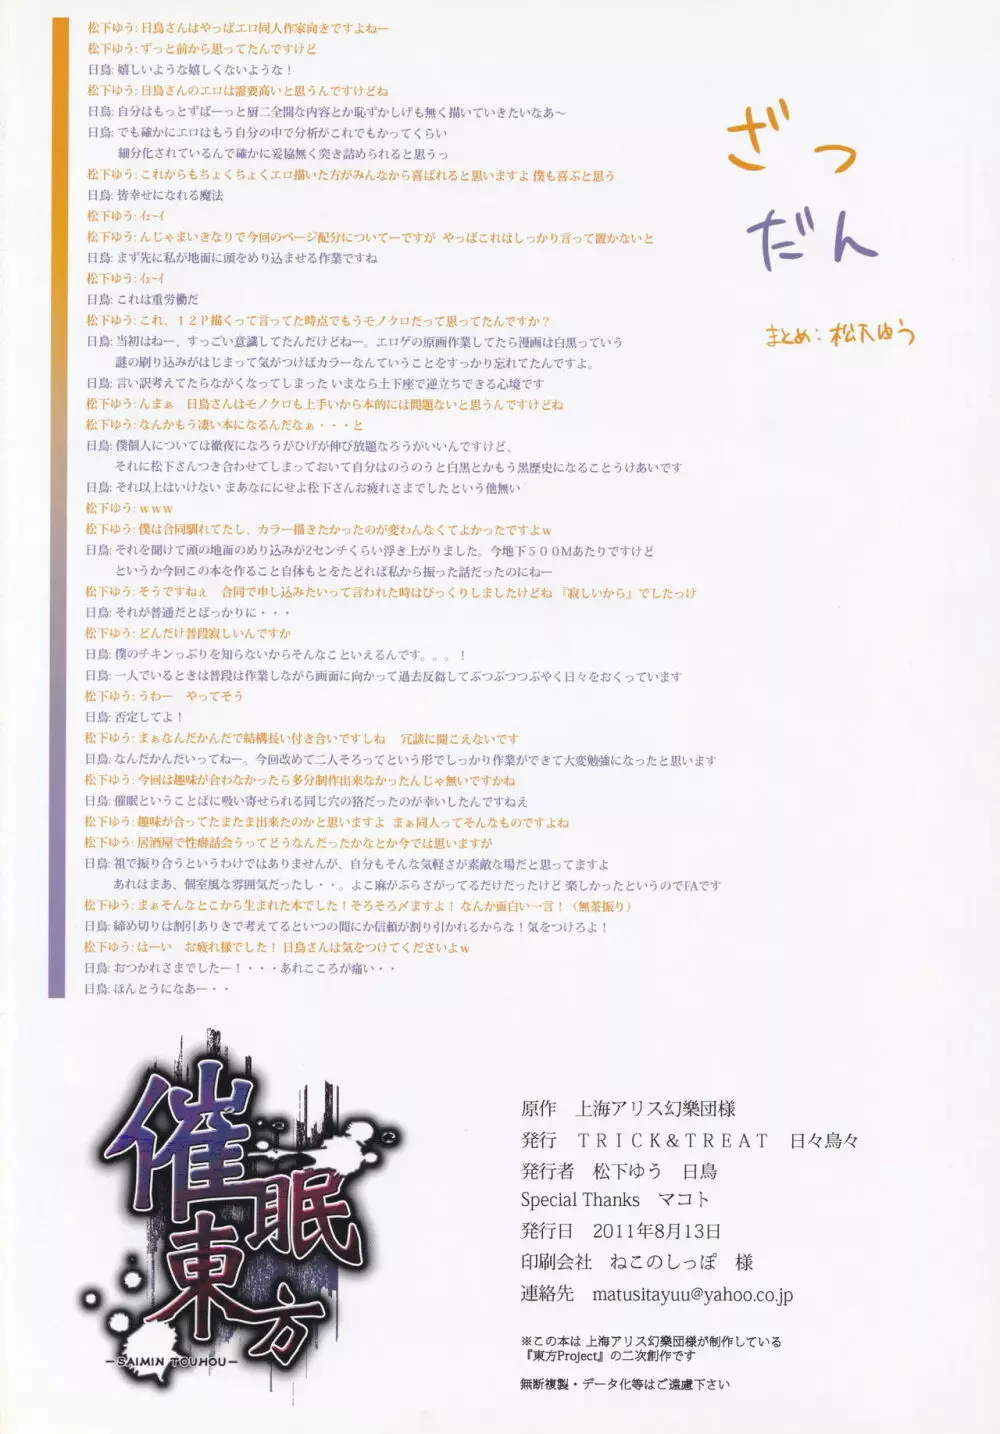 松下ゆう: 日鳥さんはやっぱエロ同人作家向きですよねー
松下ゆう: ずっと前から思ってたんですけど
日鳥: 嬉しいような嬉しくないような！
松下ゆう: 日鳥さんのエロは需要高いと思うんですけどね
日鳥: 自分はもっとずばーっと厨二全開な内容とか恥ずかしげも無く描いていきたいなあ～
日鳥: でも確かにエロはもう自分の中で分析がこれでもかってくらい
細分化されているんで確かに妥協無く突き詰められると思うっ
松下ゆう: これからもちょくちょくエロ描いた方がみんなから喜ばれると思いますよ 僕も喜ぶと思う
日鳥: 皆幸せになれる魔法
松下ゆう: ｲｪｰｲ
松下ゆう: んじゃまいきなりで今回のページ配分についてーですが やっぱこれはしっかり言って置かないと
日鳥: まず先に私が地面に頭をめり込ませる作業ですね
松下ゆう: ｲｪｰｲ
日鳥: これは重労働だ
松下ゆう: これ、１２Ｐ描くって言ってた時点でもうモノクロだって思ってたんですか？
日鳥: 当初はねー、すっごい意識してたんだけどねー。エロゲの原画作業してたら漫画は白黒っていう
謎の刷り込みがはじまって気がつけばカラーなんていうことをすっかり忘れてたんですよ。
日鳥: 言い訳考えてたらながくなってしまった いまなら土下座で逆立ちできる心境です
松下ゆう: んまぁ　日鳥さんはモノクロも上手いから本的には問題ないと思うんですけどね
松下ゆう: なんかもう凄い本になるんだなぁ・・・と
日鳥: 僕個人については徹夜になろうがひげが伸び放題なろうがいいんですけど、
それに松下さんつき合わせてしまっておいて自分はのうのうと白黒とかもう黒歴史になることうけあいです
日鳥: それ以上はいけない まあなににせよ松下さんお疲れさまでしたという他無い
松下ゆう: ｗｗｗ
松下ゆう: 僕は合同馴れてたし、カラー描きたかったのが変わんなくてよかったですよｗ
日鳥: それを聞けて頭の地面のめり込みが2センチくらい浮き上がりました。今地下５００Ｍあたりですけど
というか今回この本を作ること自体もとをたどれば私から振った話だったのにねー
松下ゆう: そうですねぇ　合同で申し込みたいって言われた時はびっくりしましたけどね 『寂しいから』でしたっけ
日鳥: それが普通だとばっかりに・・・
松下ゆう: どんだけ普段寂しいんですか
日鳥: 僕のチキンっぷりを知らないからそんなこといえるんです。。。！
日鳥: 一人でいるときは普段は作業しながら画面に向かって過去反芻してぶつぶつつぶやく日々をおくっています
松下ゆう: うわー　やってそう
日鳥: 否定してよ！
松下ゆう: まぁなんだかんだで結構長い付き合いですしね　冗談に聞こえないです
日鳥: なんだかんだいってねー。今回改めて二人そろってという形でしっかり作業ができて大変勉強になったと思います
松下ゆう: 今回は趣味が合わなかったら多分制作出来なかったんじゃ無いですかね
日鳥: 催眠ということばに吸い寄せられる同じ穴の狢だったのが幸いしたんですねえ
松下ゆう: 趣味が合ってたまたま出来たのかと思いますよ まぁ同人ってそんなものですよね
松下ゆう: 居酒屋で性癖話会うってどうなんだったかなとか今では思いますが
日鳥: 袒で振り合うというわけではありませんが、自分もそんな気軽さが素敵な場だと思ってますよ
あれはまあ、個室風な雰囲気だったし・・。よこ麻がぶらさがってるだけだったけど 楽しかったというのでFAです
松下ゆう: まぁそんなとこから生まれた本でした！そろそろ〆ますよ！ なんか面白い一言！（無茶振り）
日鳥: 締め切りは割引ありきで考えてるといつの間にか信頼が割り引かれるからな！気をつけろよ！
松下ゆう: はーい　お疲れ様でした！ 日鳥さんは気をつけてくださいよｗ
日鳥: おつかれさまでしたー！・・・あれこころが痛い・・
日鳥: ほんとうになあー・・
ざつ
だん
まとめ：松下ゆう
催眠
東方
－SAIMIN TOUHOU－
原作　上海アリス幻樂団様
発行　ＴＲＩＣＫ＆ＴＲＥＡＴ　日々鳥々
発行者　松下ゆう　日鳥
Special Thanks　マコト
発行日　2011年8月13日
印刷会社　ねこのしっぽ　様
連絡先　matusitayuu@yahoo.co.jp
※この本は 上海アリス幻樂団様が制作している
『東方Project』の二次創作です
無断複製・データ化等はご遠慮下さい